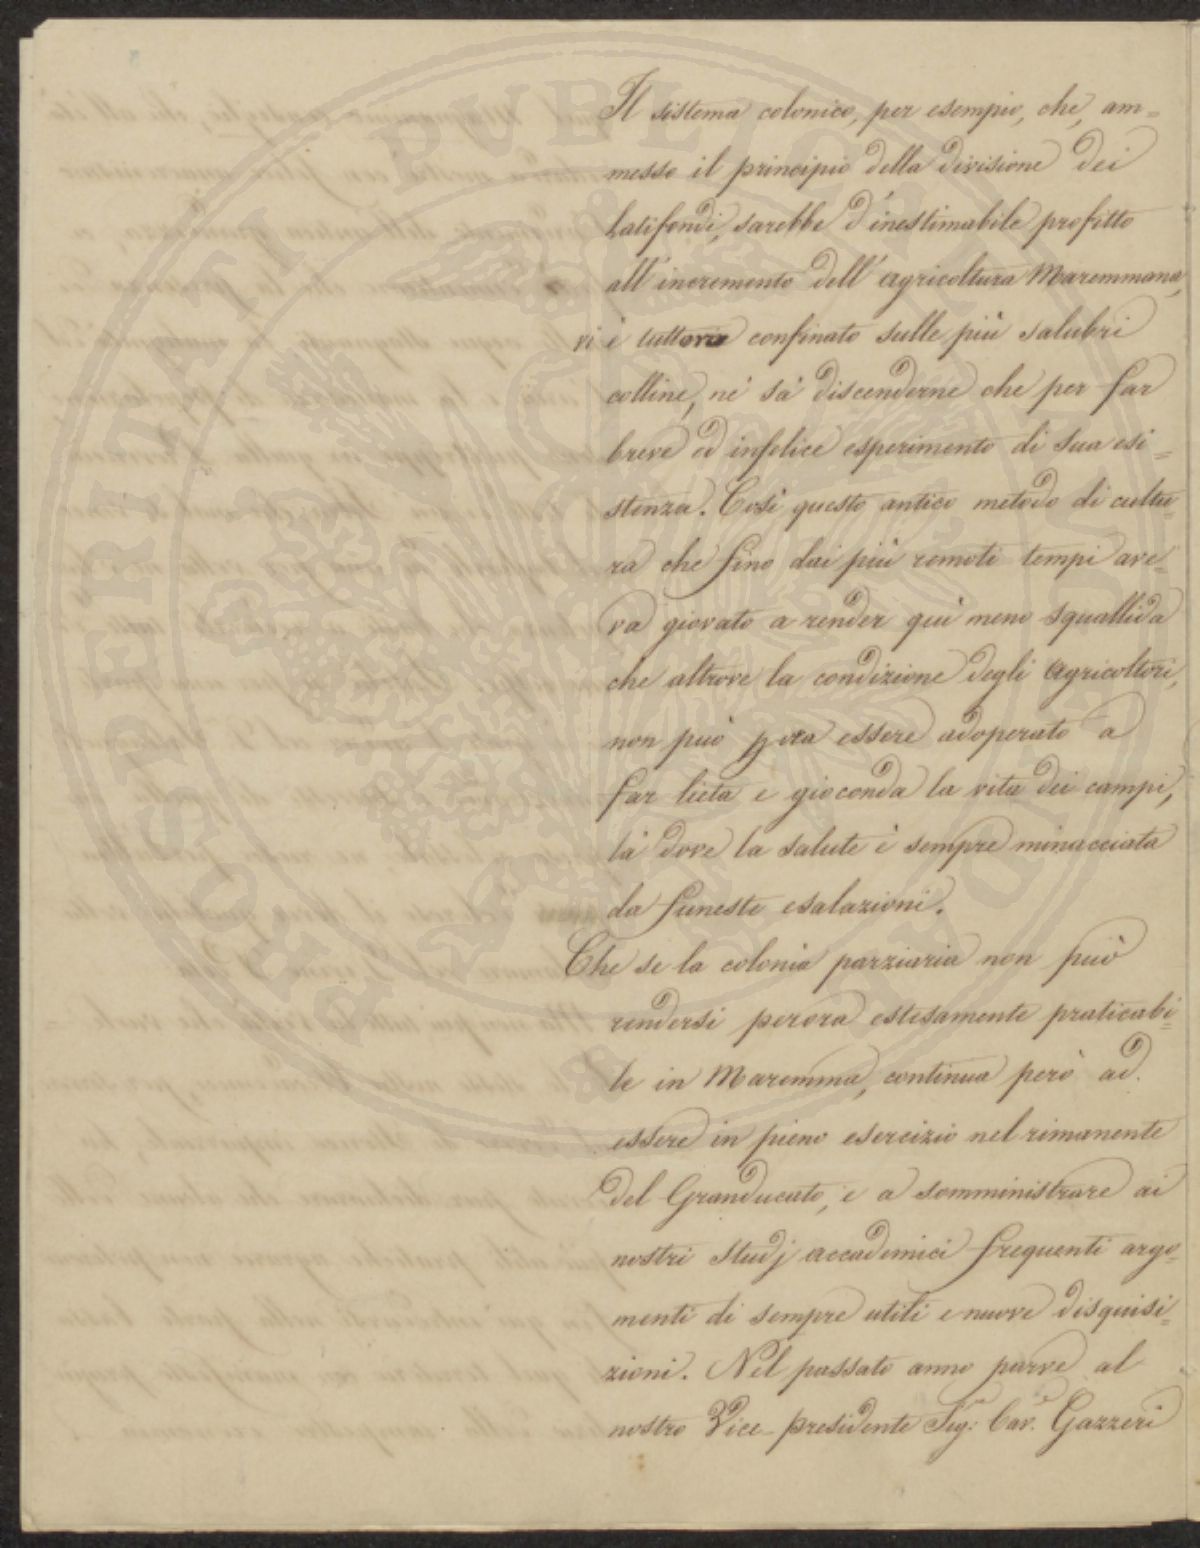 Il sistema colonico, per esempio, che, am=
messo il principio della divisione dei
latifondi, sarebbe d'inestimabile profitto
all'incremento dell'agricoltura Maremmana,
vi è tuttora confinato sulle più salubri
colline, nè sà discenderne che per far
breve ed infelice esperimento di sua esi=
stenza. Così questo antico metodo di cultu=
ra che fino dai più remoti tempi ave=
va giovato a render quì meno squallida
che altrove la condizione degli agricoltori,
non può essere adoperato a
far lieta e gioconda la vita dei campi,
là dove la salute è sempre minacciata
da funeste esalazioni.
Che se la colonìa parziaria non può
rendersi perora estesamente praticabi=
le in Maremma, continua però ad
essere in pieno esercizio nel rimanente
del Granducato, e a somministrare ai
nostri studj accademici frequenti argo=
menti di sempre utili e nuove disquisi=
zioni. Nel passato anno parve al
nostro Vice-presidente Sig: Cav.e Gazzeri
PROSPERITATI PUBLICAE